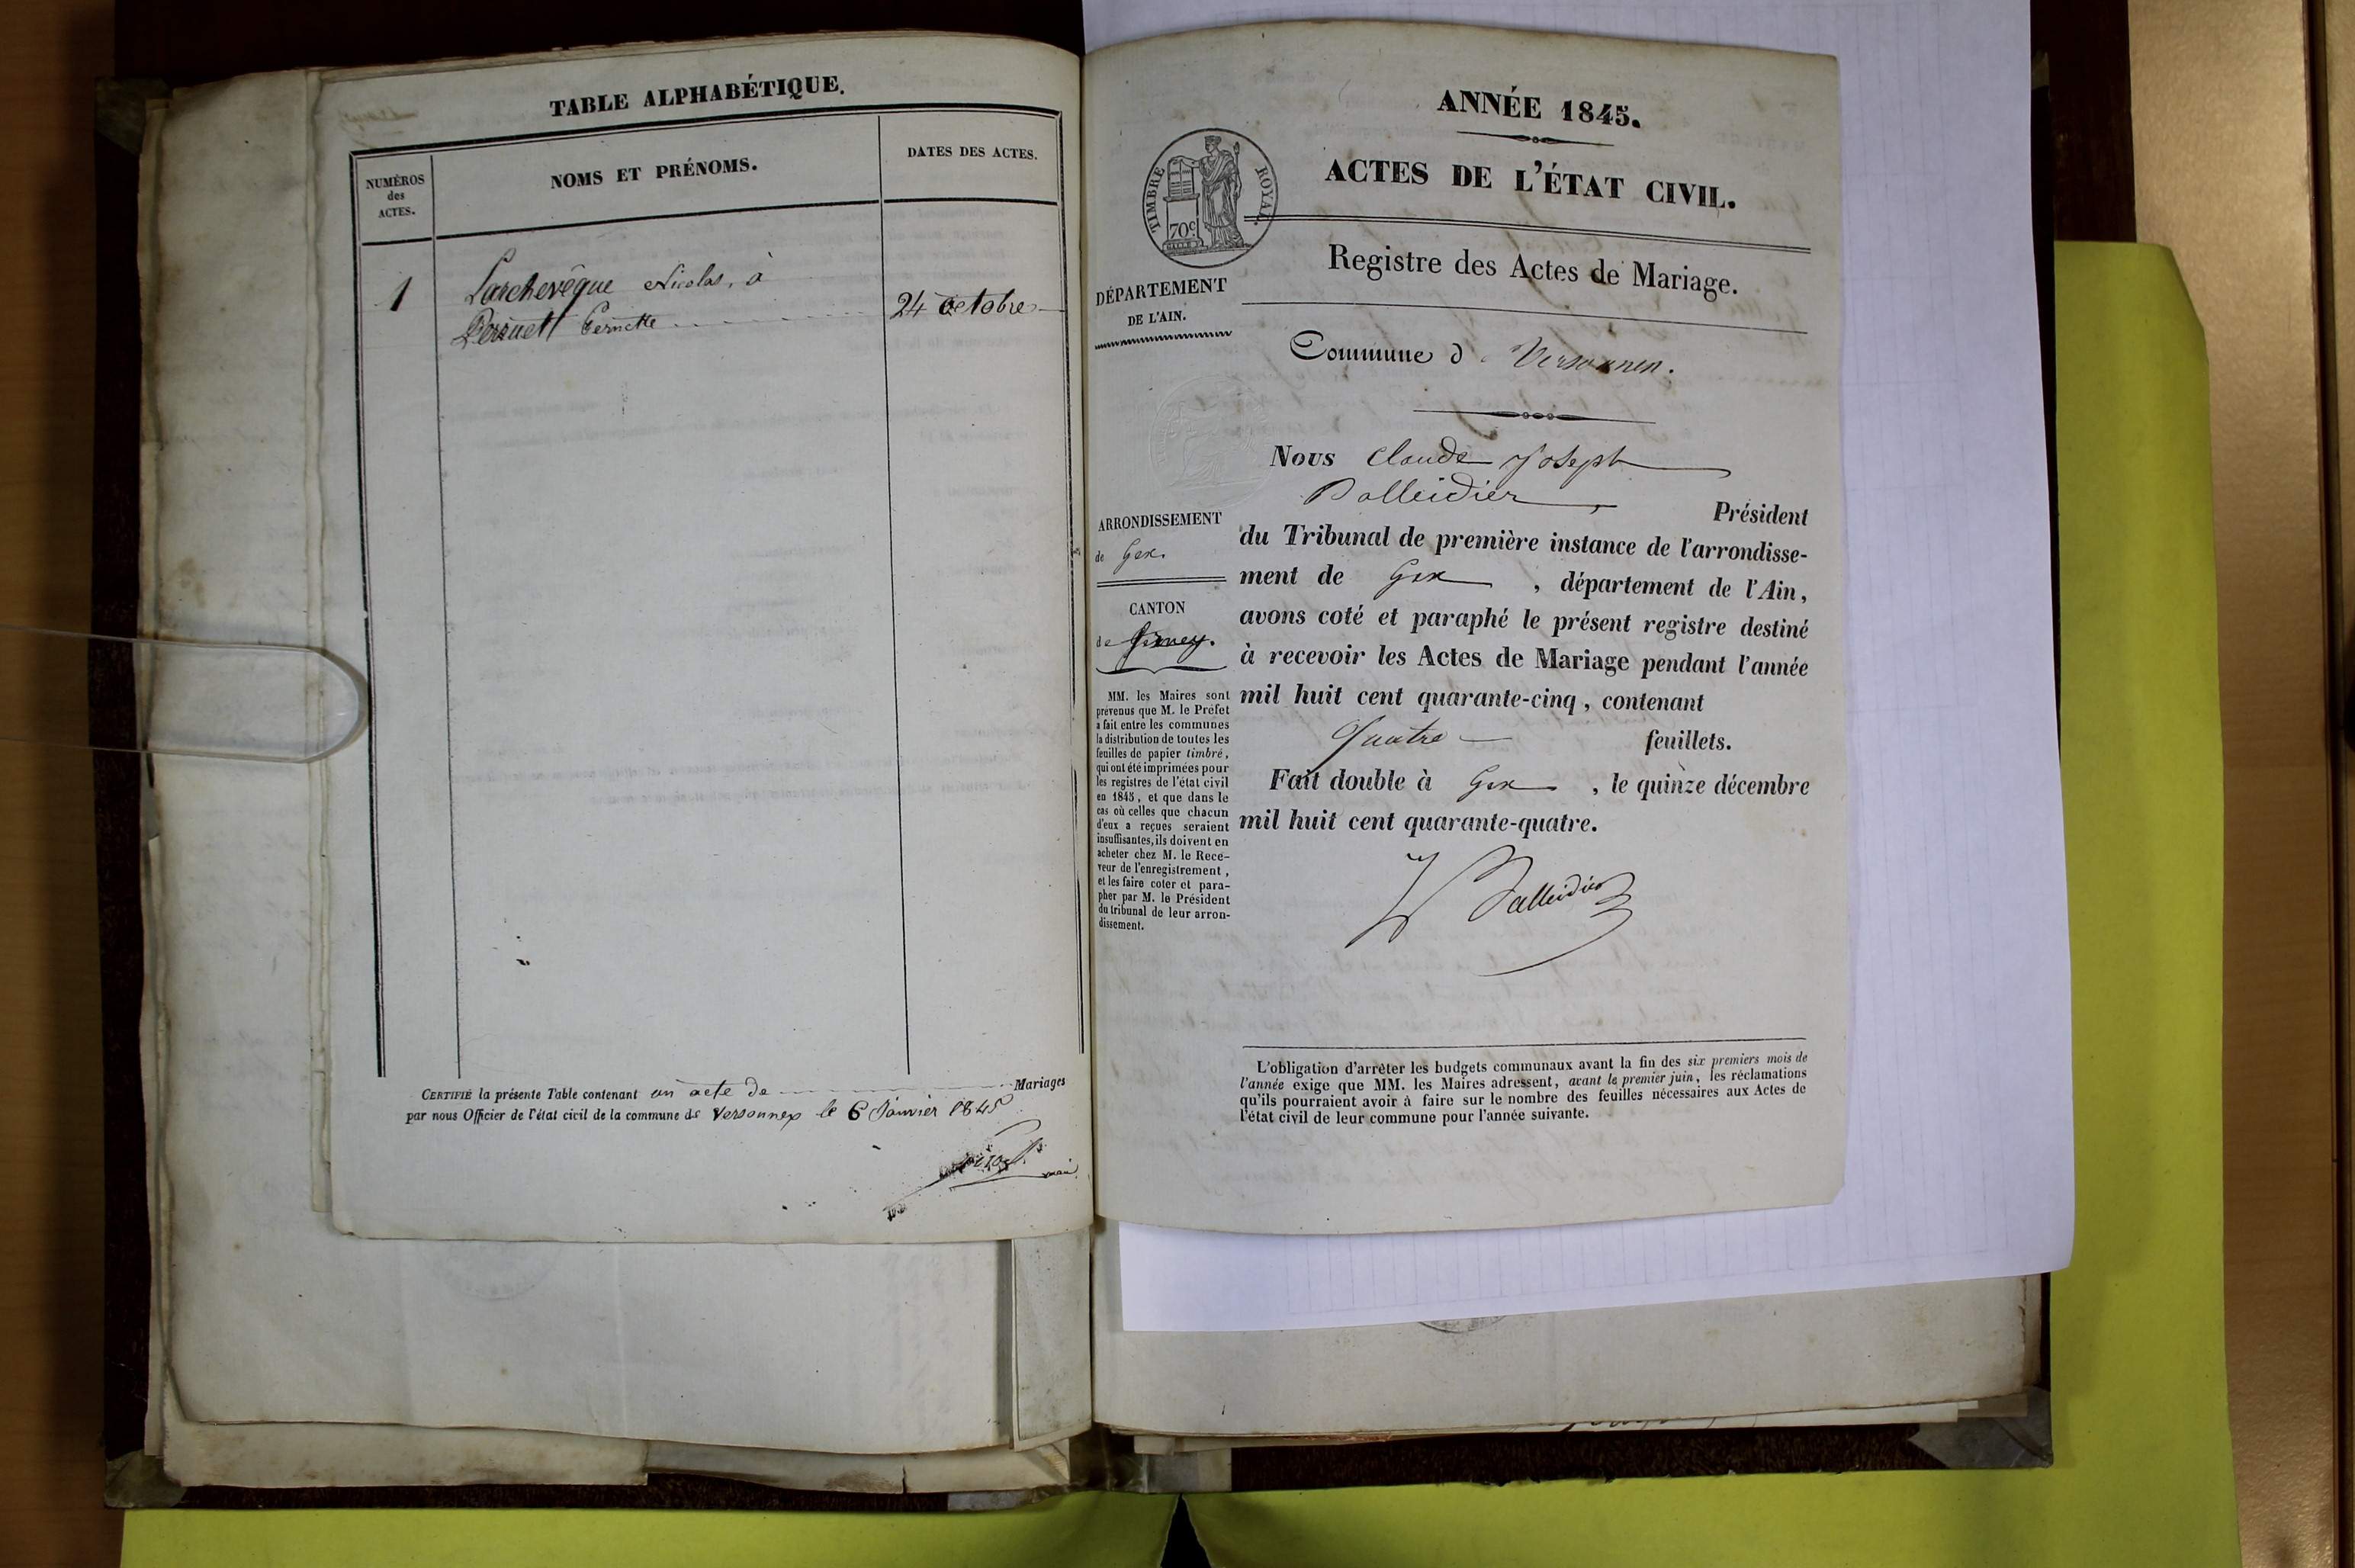 TABLE ALPHABÉTIQUE.
NUMÉROS
des
ACTES.
NOMS ET PRÉNOMS.
DATES DES ACTES.
1
Larchevêque Nicolas, à
Pernette
24 octobre
CERTIFIÉ la présente Table contenant un acte de Mariages
par nous Officier de l'état civil de la commune de Versonnex le 6 Janvier 1845
ANNÉE 1845.
ACTES DE L'ÉTAT CIVIL.
TIMBRE ROYAL.
70c
Registre des Actes de Mariage.
DÉPARTEMENT
DE L'AIN.
Commune d Versonnex.
Nous Claude Joseph
Balleidier Président
du Tribunal de première instance de l'arrondisse-
ment de Gex , département de l'Ain,
avons coté et paraphé le présent registre destiné
à recevoir les Actes de Mariage pendant l'année
mil huit cent quarante-cinq, contenant
Quatre feuillets.
Fait double à Gex , le quinze décembre
mil huit cent quarante-quatre.
Balleidier
ARRONDISSEMENT
de Gex.
CANTON
de
MM. les Maires sont
prévenus que M. le Préfet
a fait entre les communes
la distribution de toutes les
feuilles de papier timbré,
qui ont été imprimées pour
les registres de l'état civil
en 1845, et que dans le
cas où celles que chacun
d'eux a reçues seraient
insuffisantes, ils doivent en
acheter chez M. le Rece-
veur de l'enregistrement,
et les faire coter et para-
pher par M. le Président
du tribunal de leur arron-
dissement.
L'obligation d'arrêter les budgets communaux avant la fin des six premiers mois de
l'année exige que MM. les Maires adressent, avant le premier juin, les réclamations
qu'ils pourraient avoir à faire sur le nombre des feuilles nécessaires aux Actes de
l'état civil de leur commune pour l'année suivante.